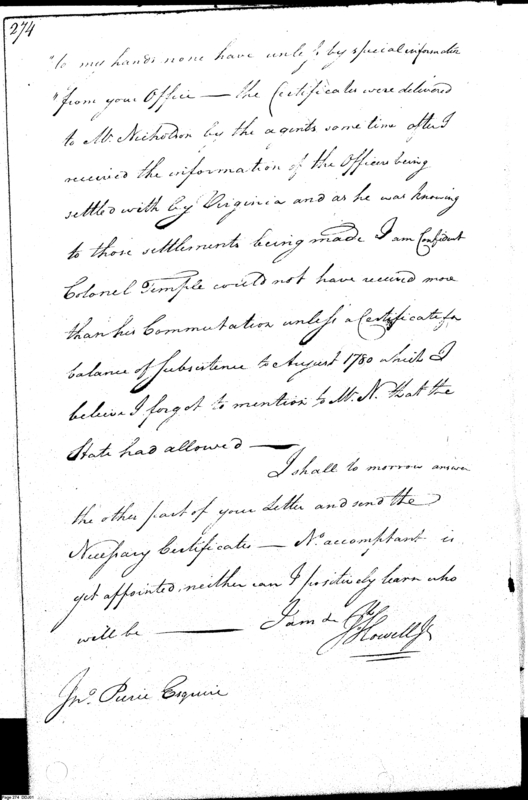 274
"to my hands none have unless by special information
"from your Office — the Certificates were delivered
to Mr. Nicholson by the agents some time after I
received the information of the Officers being
settled with by Virginia and as he was knowing
to those settlements being made I am Confident
Colonel Temple could not have received more
than his Commutation unless a Certificate for
balance of Subsistence to August 1780 which I
beleive I forgot to mention to Mr. N. that the
State had allowed —
I shall to morrow answer
the other part of your Letter and send the
Necessary Certificates — No. accomptant is
yet appointed, neither can I positively learn who
will be — I am &
Js. Howell Jr
Jno. Pierce Esquire
Page 274